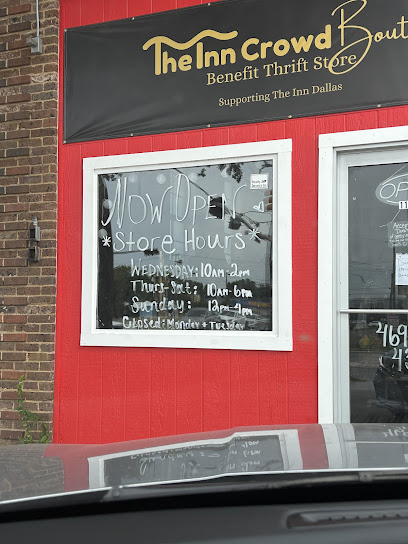 The Inn Crowd Bout
Benefit Thrift Store
Supporting The Inn Dallas
Now Open
*Store Hours*
Wednesday: 10am-2pm
Thurs-Sat: 10am-6pm
Sunday: 12pm-4pm
Closed: Monday + Tuesday
OP
11
469
43